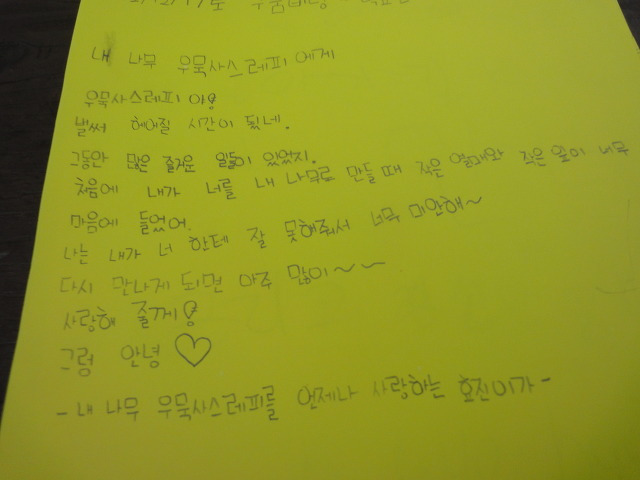 내 나무 우묵사스레피에게
우묵사스레피야!
벌써 헤어질 시간이 됬네.
그동안 많은 즐거운 일들이 있었지.
처음에 내가 너를 내 나무로 만들 때 작은 열매와 작은 잎이 너무
마음에 들었어.
나는 내가 너 한테 잘 못해줘서 너무 미안해~
다시 만나게 되면 아주 많이~~
사랑해 줄게!
그럼 안녕♡
- 내 나무 우묵사스레피를 언제나 사랑하는 효진이가 -